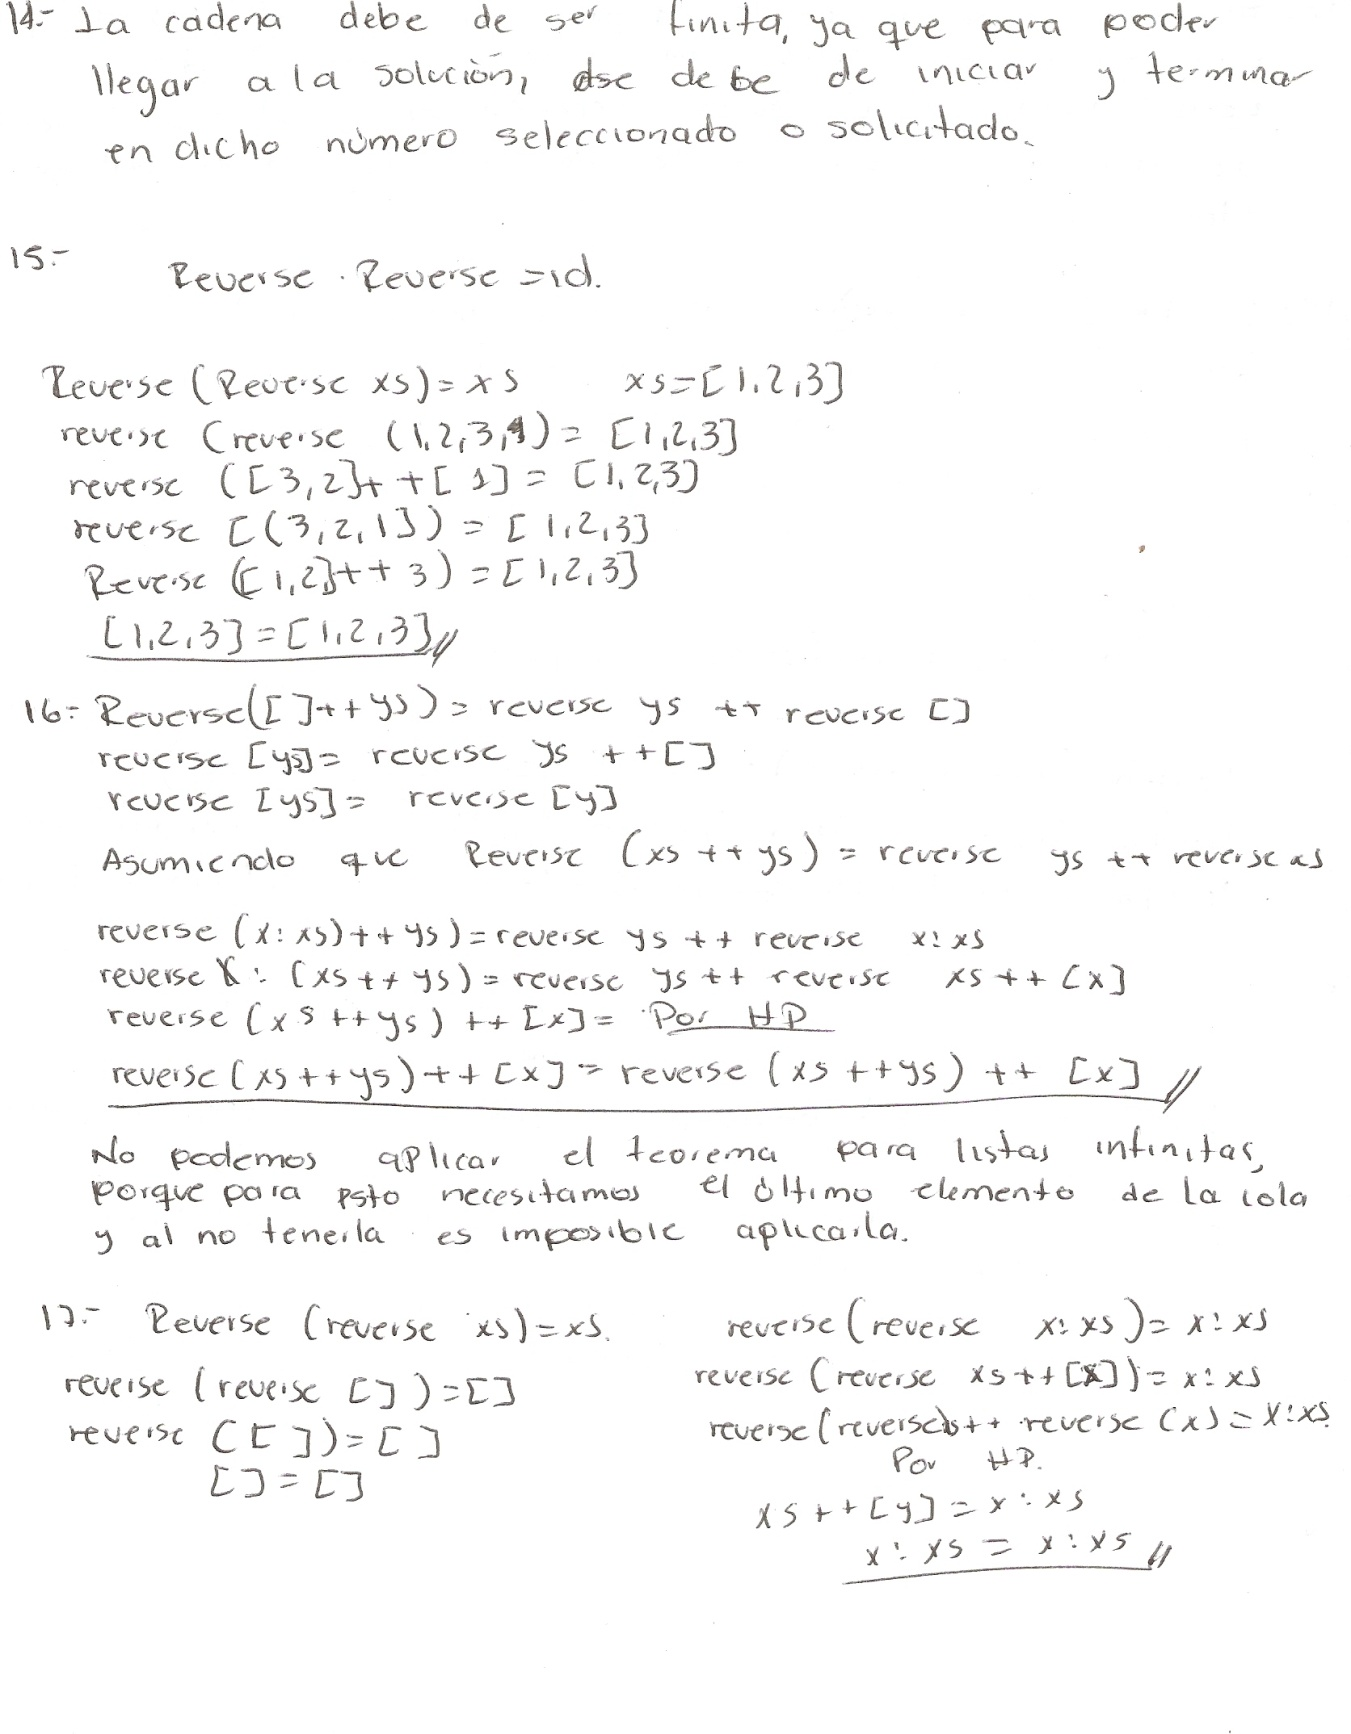 14.- La cadena debe de ser finita, ya que para poder
llegar a la solución, se debe de iniciar y terminar
en dicho número seleccionado o solicitado.
15.-
Reverse . Reverse = id.
Reverse (Reverse xs) = xs xs=[1,2,3]
reverse (reverse (1,2,3,4) = [1,2,3]
reverse ([3,2]++[1] = [1,2,3]
reverse [(3,2,1]) = [1,2,3]
Reverse ([1,2]++3) = [1,2,3]
[1,2,3] = [1,2,3]//
16.- Reverse([]++ys) = reverse ys ++ reverse []
reverse [ys] = reverse ys ++[]
reverse [ys] = reverse [y]
Asumiendo que Reverse (xs ++ ys) = reverse ys ++ reverse xs
reverse (x:xs)++ys) = reverse ys ++ reverse x:xs
reverse x : (xs ++ ys) = reverse ys ++ reverse xs ++ [x]
reverse (xs ++ys) ++ [x] = Por HP
reverse (xs ++ys) ++ [x] = reverse (xs ++ys) ++ [x] //
No podemos aplicar el teorema para listas infinitas,
porque para esto necesitamos el último elemento de la cola
y al no tenerla es imposible aplicarla.
17.- Reverse (reverse xs) = xs.
reverse (reverse []) = []
reverse ([]) = []
[] = []
reverse (reverse x:xs) = x:xs
reverse (reverse xs ++ [x]) = x:xs
reverse (reverse xs ++ reverse (x) = x:xs
Por HP.
xs ++ [y] = x:xs
x:xs = x:xs //